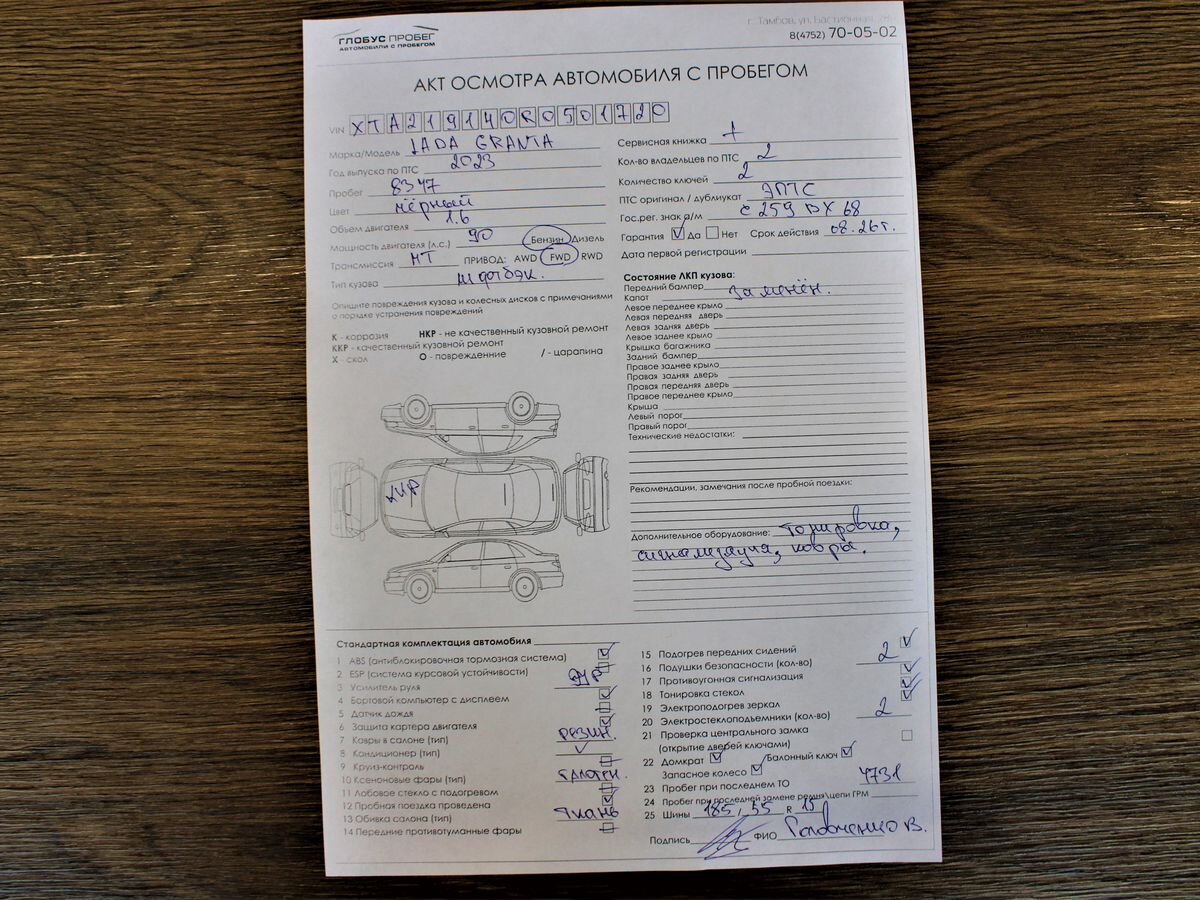 ГЛОБУС ПРОБЕГ
АВТОМОБИЛИ С ПРОБЕГОМ
г. Тамбов, ул. Бастионная,
8(4752) 70-05-02
АКТ ОСМОТРА АВТОМОБИЛЯ С ПРОБЕГОМ
VIN XTA219140R0501720
Марка/Модель LADA GRANTA
Год выпуска по ПТС 2023
Пробег 8347
Цвет чёрный
Объем двигателя 1.6
Мощность двигателя (л.с.) 90 Бензин Дизель
Трансмиссия МТ ПРИВОД: AWD FWD RWD
Тип кузова лифтбэк.
Опишите повреждения кузова и колесных дисков с примечаниями
о порядке устранения повреждений
К - коррозия НКР - не качественный кузовной ремонт
ККР - качественный кузовной ремонт
Х - скол О - повреждениие / - царапина
ККР
Сервисная книжка +
Кол-во владельцев по ПТС 2
Количество ключей 2
ПТС оригинал / дубликат ЭПТС
Гос.рег. знак а/м С 259 ВХ 68
Гарантия Да Нет Срок действия 08.26г.
Дата первой регистрации
Состояние ЛКП кузова:
Передний бампер
Капот заменён.
Левое переднее крыло
Левая передняя дверь
Левая задняя дверь
Левое заднее крыло
Крышка багажника
Задний бампер
Правое заднее крыло
Правая задняя дверь
Правая передняя дверь
Правое переднее крыло
Крыша
Левый порог
Правый порог
Технические недостатки:
Рекомендации, замечания после пробной поездки:
Дополнительное оборудование: тонировка,
сигнализация, ковры.
Стандартная комплектация автомобиля
1 ABS (антиблокировочная тормозная система)
2 ESP (система курсовой устойчивости)
3 Усилитель руля ЭУР
4 Бортовой компьютер с дисплеем
5 Датчик дождя
6 Защита картера двигателя
7 Ковры в салоне (тип) резин.
8 Кондиционер (тип)
9 Круиз-контроль
10 Ксеноновые фары (тип) галоген.
11 Лобовое стекло с подогревом
12 Пробная поездка проведена
13 Обивка салона (тип) ткань
14 Передние противотуманные фары
15 Подогрев передних сидений
16 Подушки безопасности (кол-во) 2
17 Противоугонная сигнализация
18 Тонировка стекол
19 Электроподогрев зеркал
20 Электростеклоподъемники (кол-во) 2
21 Проверка центрального замка
(открытие дверей ключами)
22 Домкрат Балонный ключ
Запасное колесо
23 Пробег при последнем ТО 4731
24 Пробег при последней замене ремня\цепи ГРМ
25 Шины 185 / 55 R 15
Подпись ФИО Головченко В.